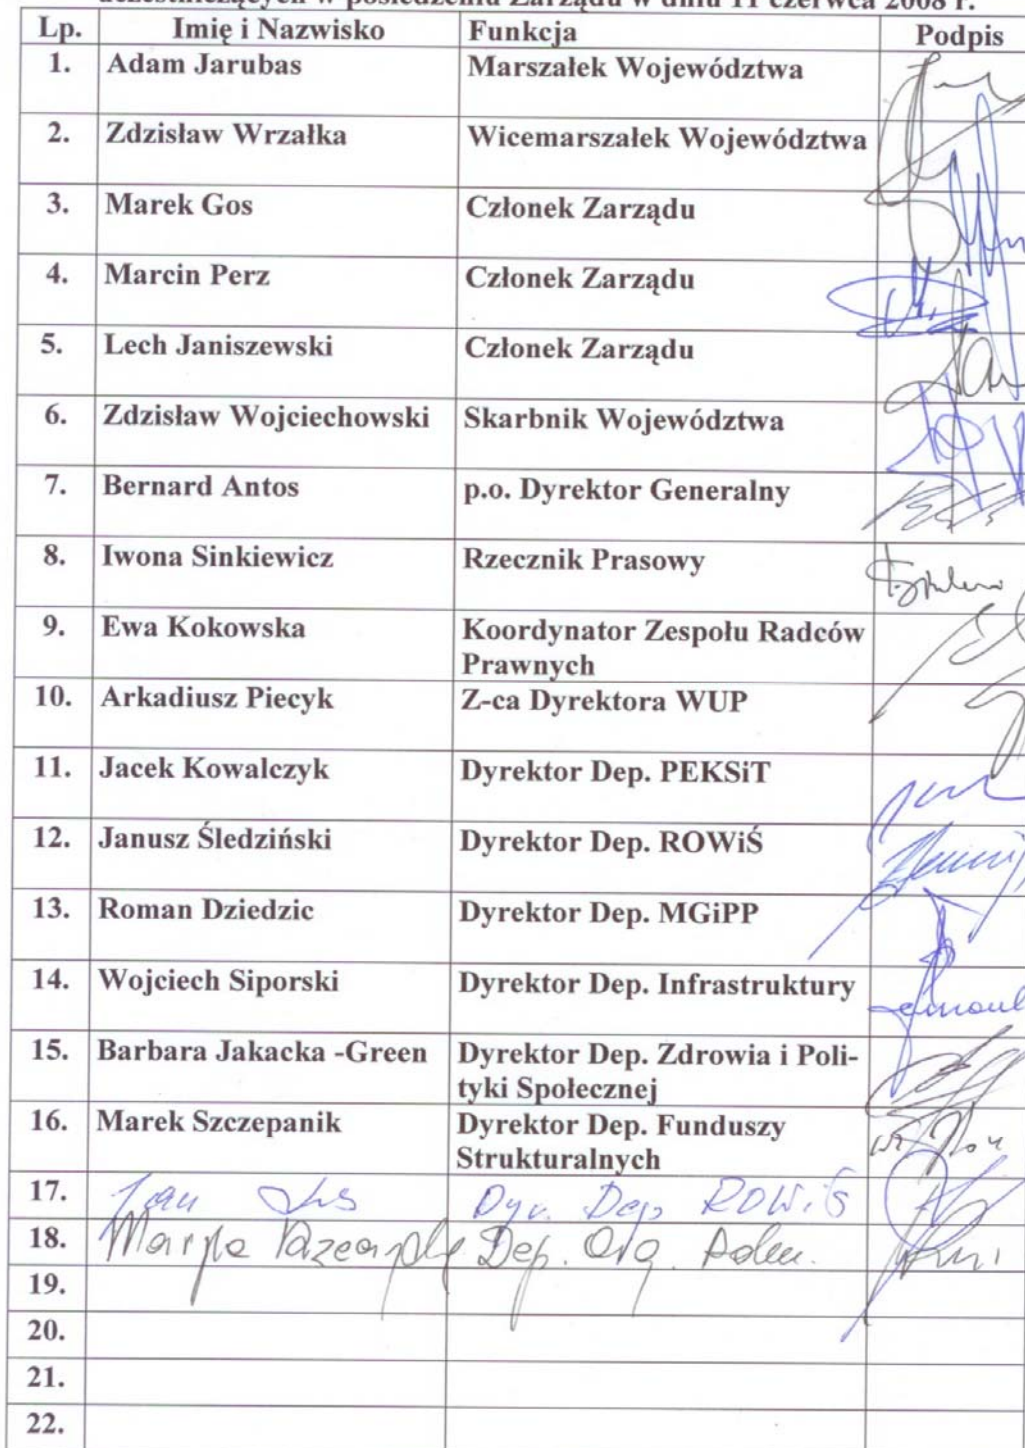 uczestniczących w posiedzeniu Zarządu w dniu 11 czerwca 2008 r.
Lp. Imię i Nazwisko Funkcja Podpis
1. Adam Jarubas Marszałek Województwa
2. Zdzisław Wrzałka Wicemarszałek Województwa
3. Marek Gos Członek Zarządu
4. Marcin Perz Członek Zarządu
5. Lech Janiszewski Członek Zarządu
6. Zdzisław Wojciechowski Skarbnik Województwa
7. Bernard Antos p.o. Dyrektor Generalny
8. Iwona Sinkiewicz Rzecznik Prasowy
9. Ewa Kokowska Koordynator Zespołu Radców
Prawnych
10. Arkadiusz Piecyk Z-ca Dyrektora WUP
11. Jacek Kowalczyk Dyrektor Dep. PEKSiT
12. Janusz Śledziński Dyrektor Dep. ROWiŚ
13. Roman Dziedzic Dyrektor Dep. MGiPP
14. Wojciech Siporski Dyrektor Dep. Infrastruktury
15. Barbara Jakacka -Green Dyrektor Dep. Zdrowia i Poli-
tyki Społecznej
16. Marek Szczepanik Dyrektor Dep. Funduszy
Strukturalnych
17. Jan Dyr. Dep ROWiŚ
18. Dep. Org. Adm.
19.
20.
21.
22.